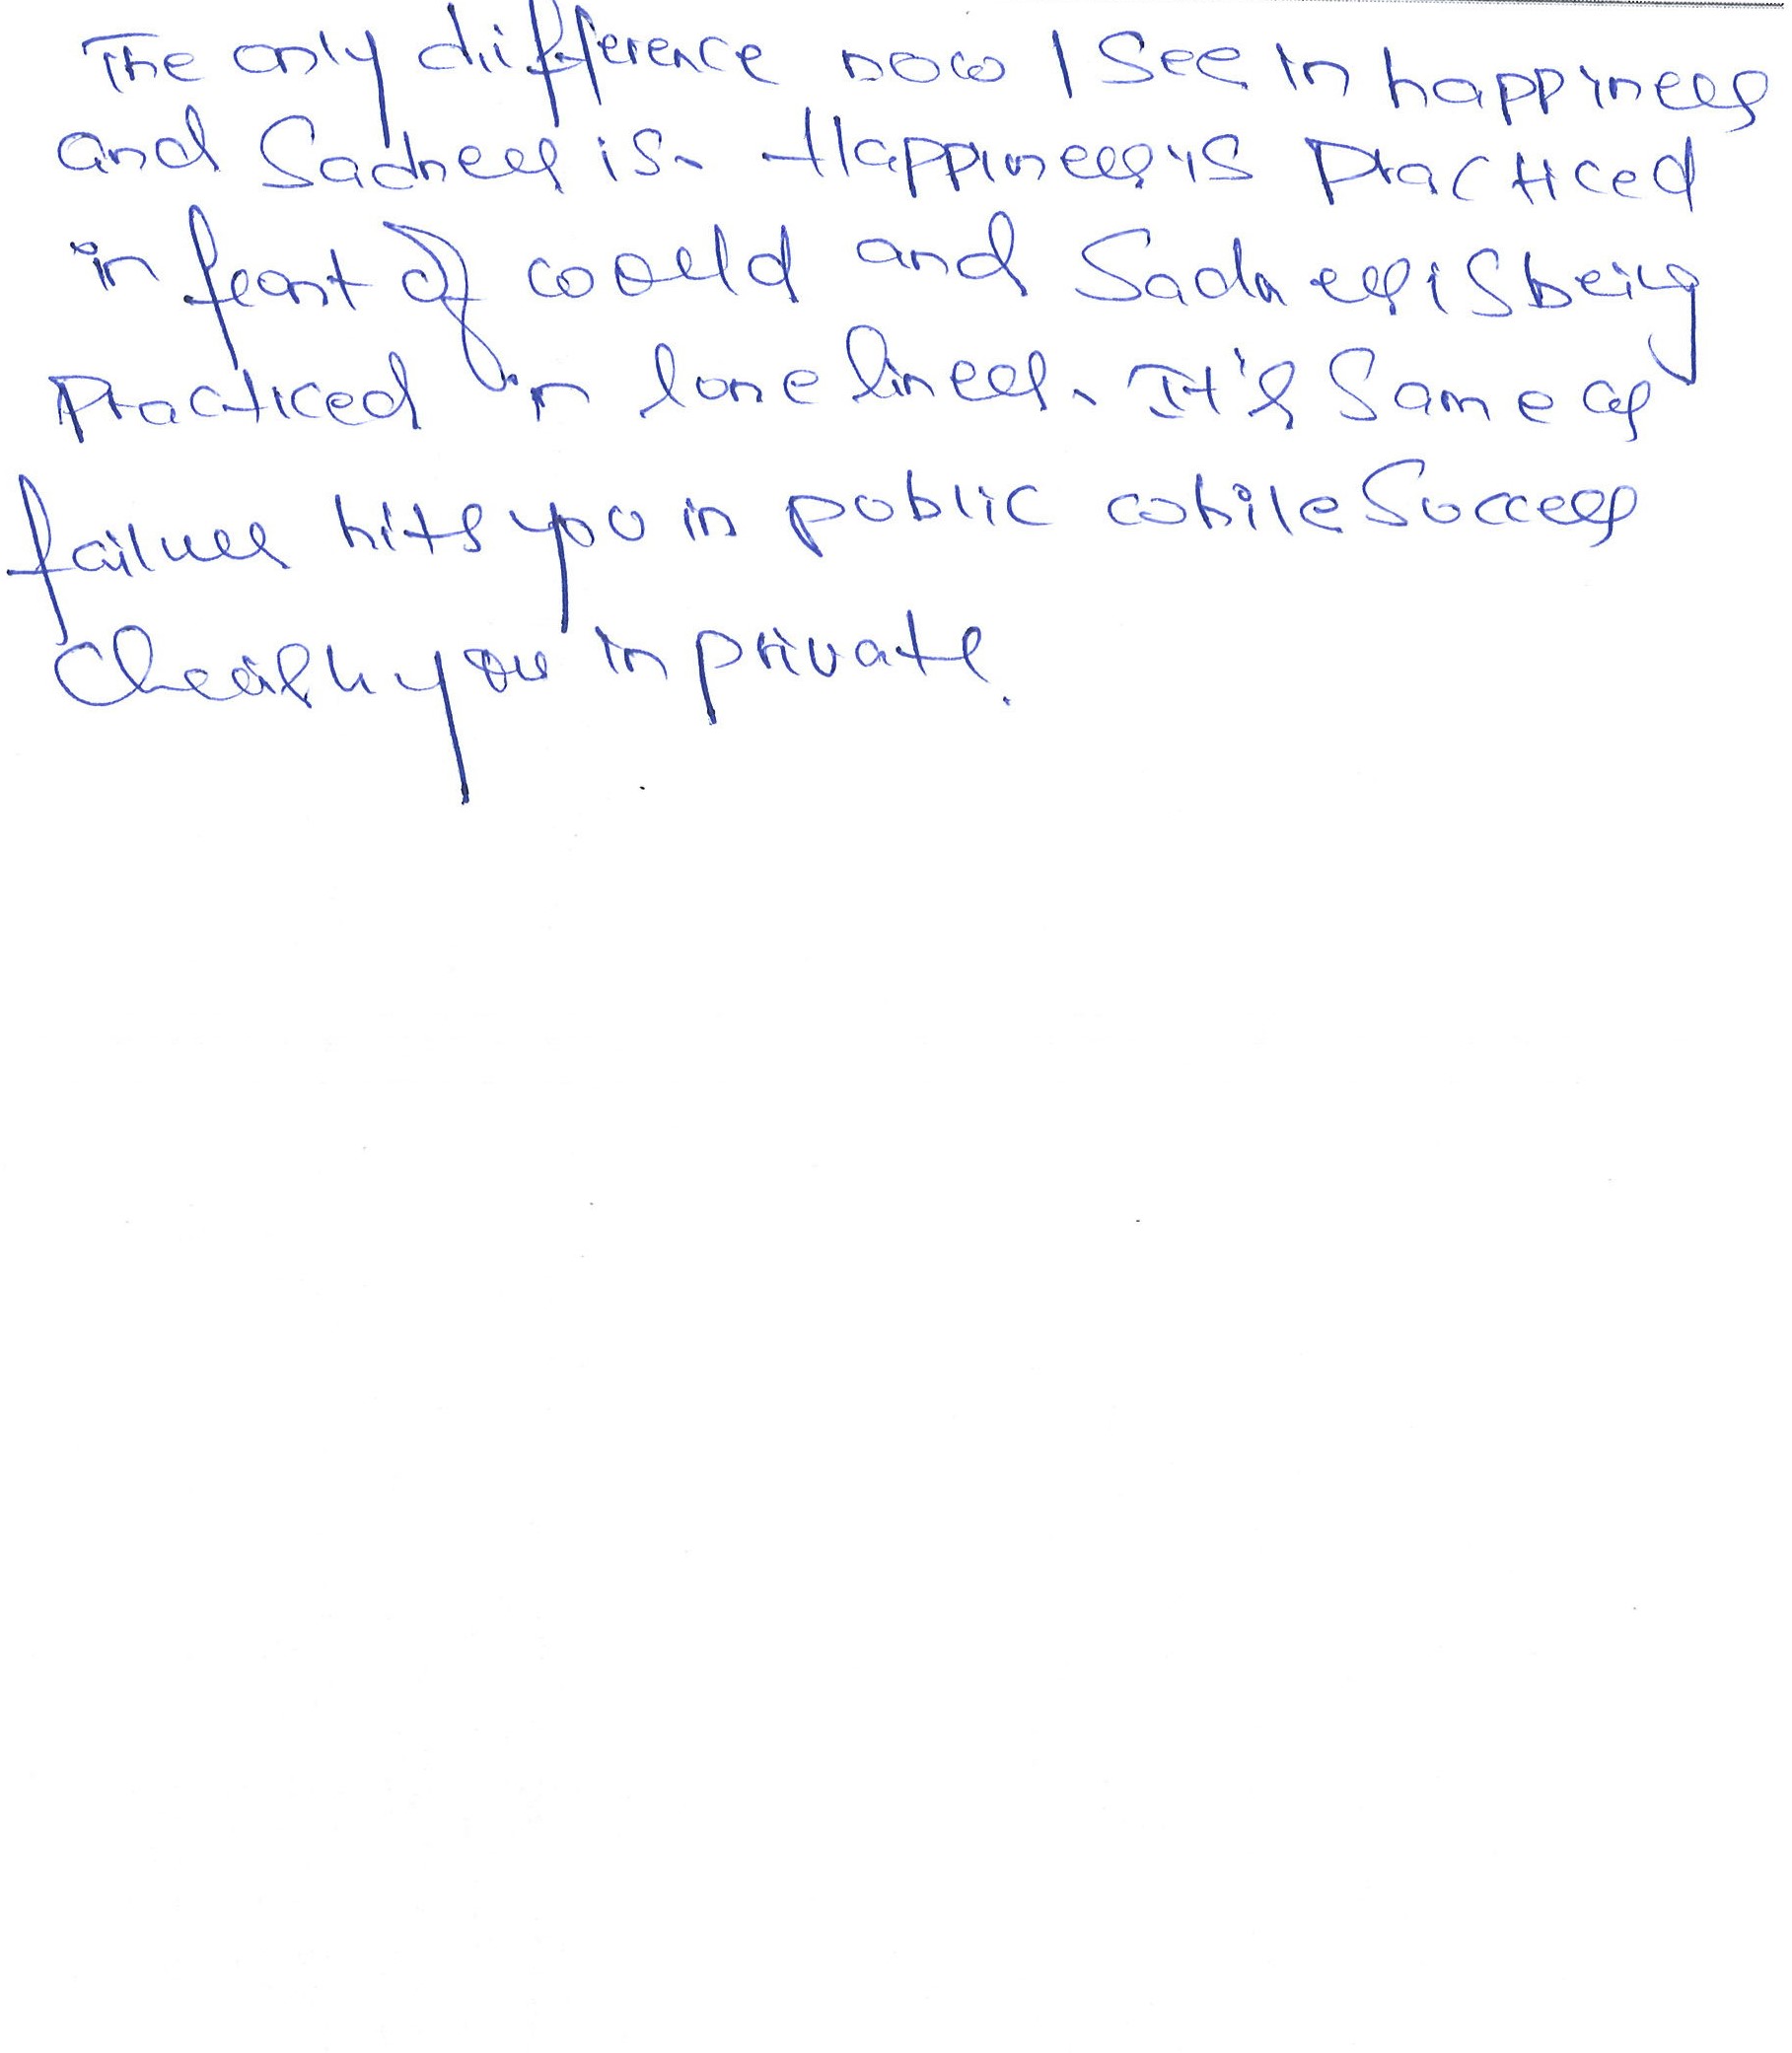 The only difference now I see in happiness
and Sadness is. Happiness is Practiced
in front of world and Sadness is being
Practiced in loneliness. It's Same as
failure hits you in public while Success
Cherish you in private.